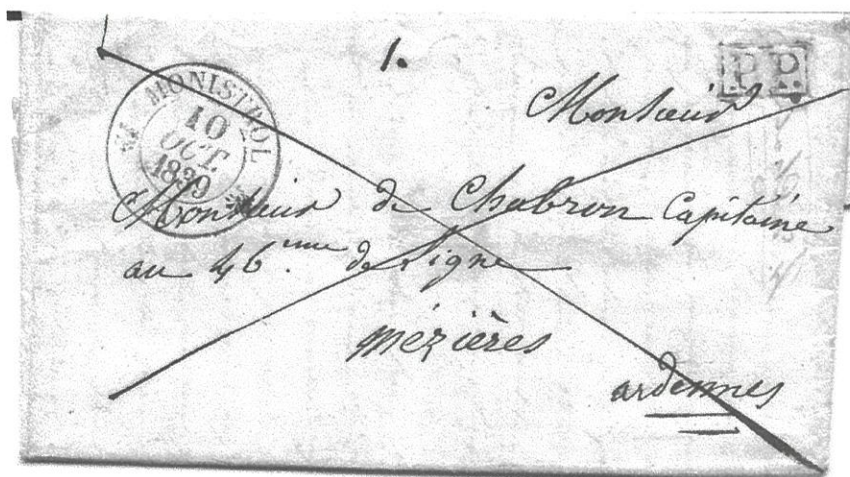 1.
P.P.
MONISTROL
10
OCT
1839
Monsieur
Monsieur de Chabron Capitaine
au 46.eme de ligne
Mézières
ardennes